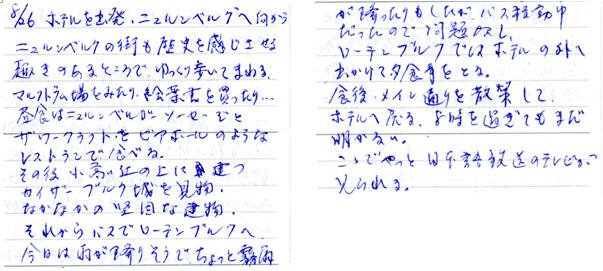 8/26 ホテルを出発、ニュルンベルグへ向かう
ニュルンベルクの街も歴史を感じさせる
趣きのあるところで、ゆっくり歩いてまわる。
マルクト広場をみたり、絵葉書を買ったり…
昼食はニュルンベルガーソーセージと
ザワークラフトをビアホールのような
レストランで食べる。
その後 小高い丘の上に建つ
カイザーブルク城を見物、
なかなかの堅固な建物、
それからバスでローテンブルクへ
今日は雨が降りそうで、ちょっと霧雨
が降ったりもしたが、バス移動中
だったので問題なし。
ローテンブルクではホテルの外へ
出かけて夕食をとる。
食後、メイン通りを散策して、
ホテルへ戻る、8時を過ぎてもまだ
明かるい。
ここでやっと日本語放送のテレビが
見られる。